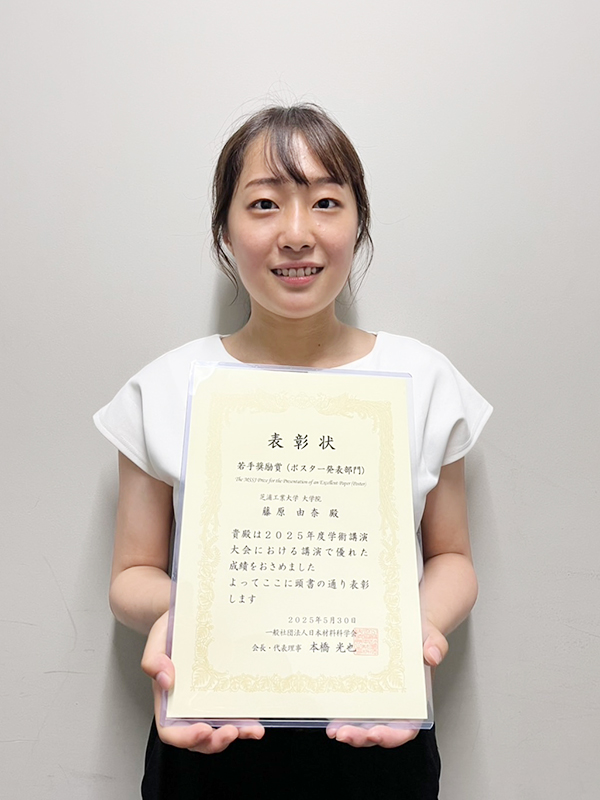 表彰状
若手奨励賞(ポスター発表部門)
The MSSJ Prize for the Presentation of an Excellent Paper (Poster)
芝浦工業大学 大学院
藤原 由奈 殿
貴殿は2025年度学術講演
大会における講演で優れた
成績をおさめました
よってここに頭書の通り表彰
します
2025年5月30日
一般社団法人日本材料科学会
会長・代表理事 本橋 光也